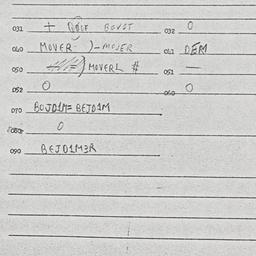 031 + ROLE BOVST 032 0
040 MOVER )-MOVER 041 DEM
050 ) MOVER2 # 051 —
052 0 060 0
070 BOJD1M= BEJD1M
080 0
090 BEJD1M3R